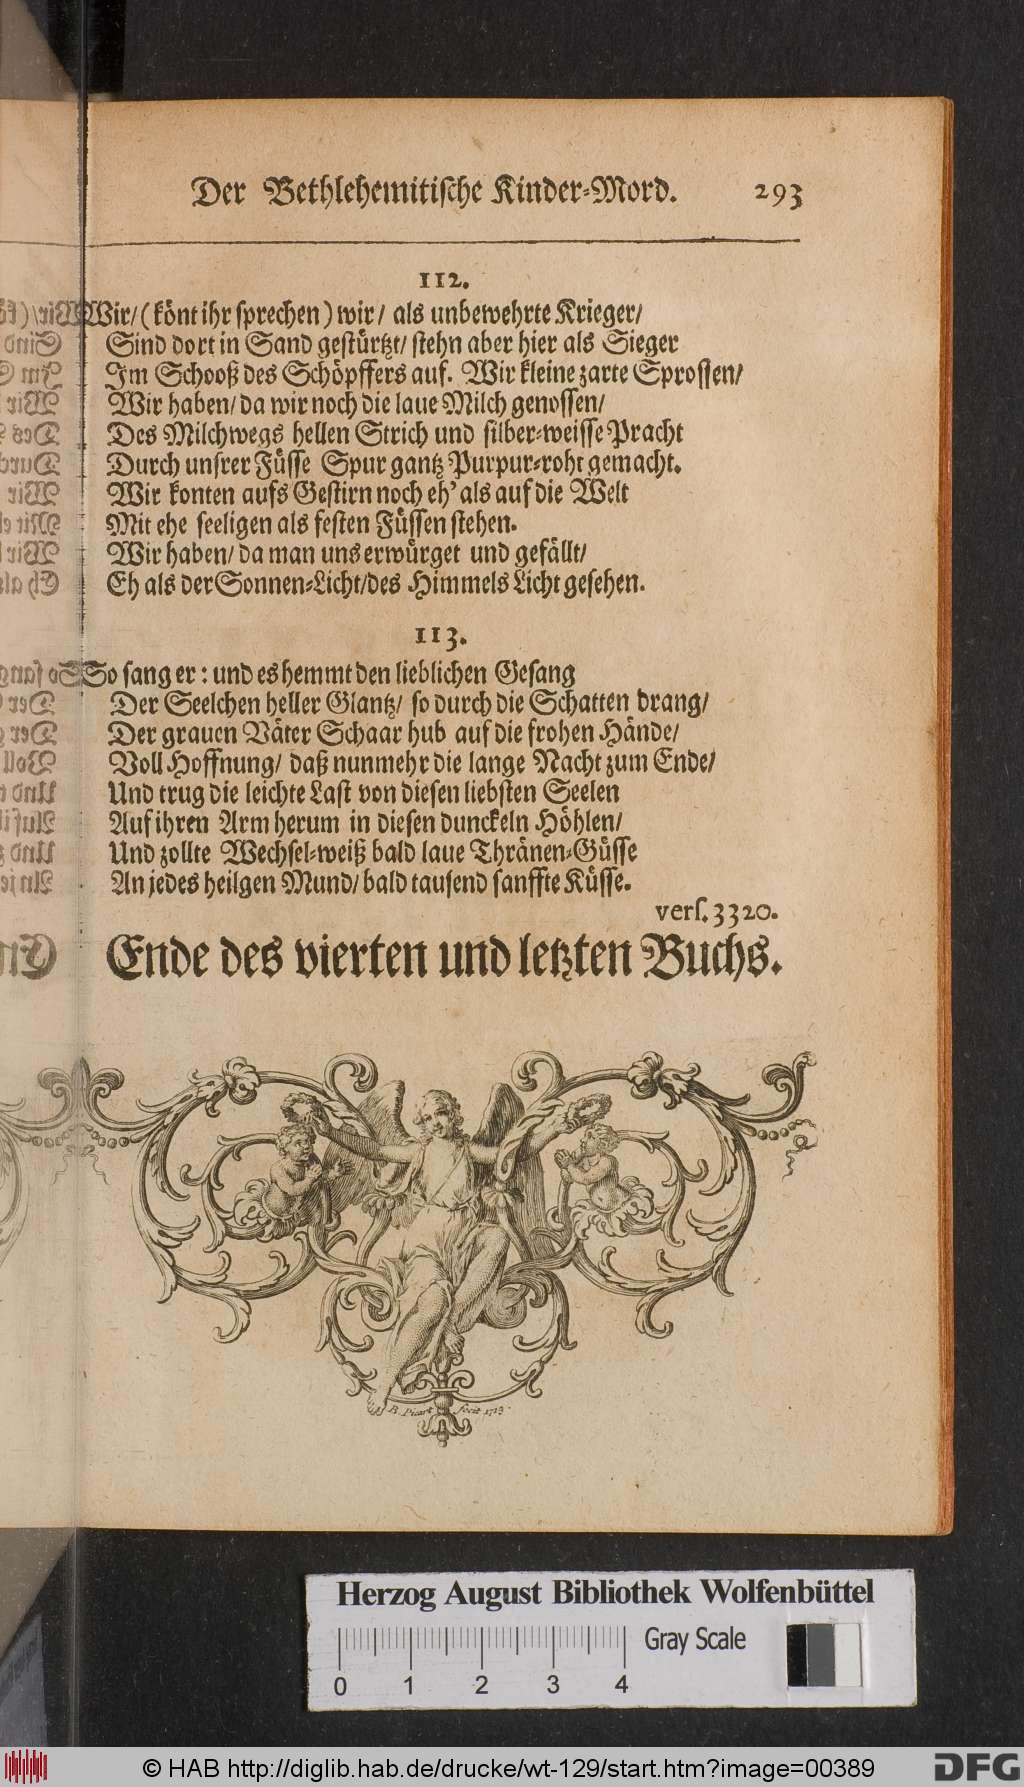 Der Bethlehemitische Kinder-Mord. 293
112.
Wir/ (könt ihr sprechen) wir/ als unbewehrte Krieger/
Sind dort in Sand gestürtzt/ stehn aber hier als Sieger
Im Schooß des Schöpffers auf. Wir kleine zarte Sprossen/
Wir haben/ da wir noch die laue Milch genossen/
Des Milchwegs hellen Strich und silber-weisse Pracht
Durch unsrer Füsse Spur gantz Purpur-roht gemacht.
Wir konten aufs Gestirn noch eh' als auf die Welt
Mit ehe seeligen als festen Füssen stehen.
Wir haben/ da man uns erwürget und gefällt/
Eh als der Sonnen-Licht/ des Himmels Licht gesehen.
113.
So sang er: und es hemmt den lieblichen Gesang
Der Seelchen heller Glantz/ so durch die Schatten drang/
Der grauen Väter Schaar hub auf die frohen Hände/
Voll Hoffnung/ daß nunmehr die lange Nacht zum Ende/
Und trug die leichte Last von diesen liebsten Seelen
Auf ihren Arm herum in diesen dunckeln Höhlen/
Und zollte Wechsel-weiß bald laue Thränen-Güsse
An jedes heilgen Mund/ bald tausend sanffte Küsse.
vers. 3320.
Ende des vierten und letzten Buchs.
B. Picart fecit 1713.
Herzog August Bibliothek Wolfenbüttel
Gray Scale
0 1 2 3 4
© HAB http://diglib.hab.de/drucke/wt-129/start.htm?image=00389
DFG